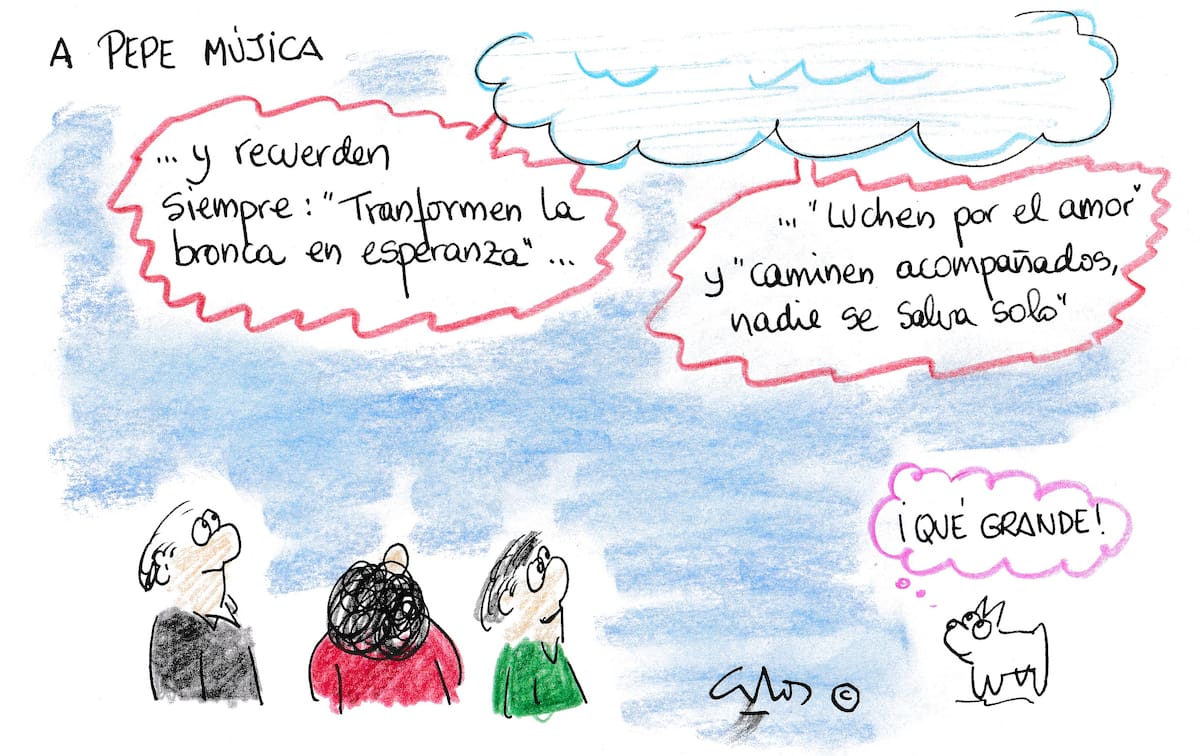 A PEPE MÚJICA
... y recuerden
siempre: "Tranformen la
bronca en esperanza" ...
... "Luchen por el amor"
y "caminen acompañados,
nadie se salva solo"
¡QUÉ GRANDE!
©